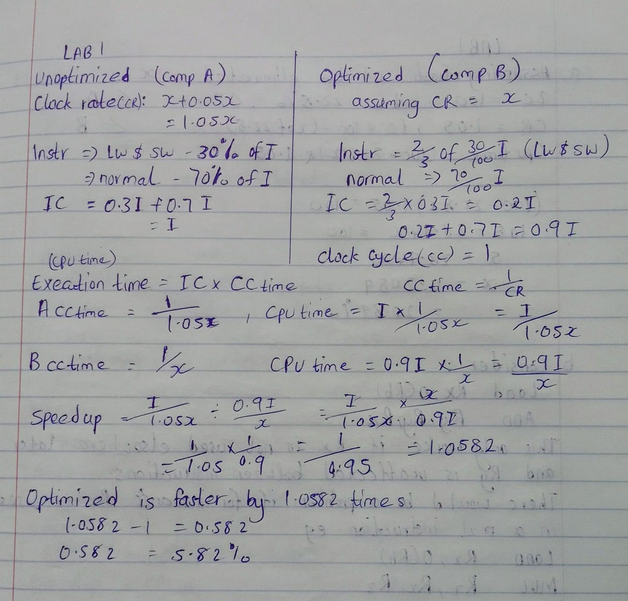 LAB 1
Unoptimized (Comp A)
Clock rate(CR): x+0.05x
= 1.05x
Instr => LW $ SW - 30% of I
=> normal - 70% of I
IC = 0.3I + 0.7I
= I
Optimized (comp B)
assuming CR = x
Instr = 2/3 of 30/100 I (LW $ SW)
normal => 70/100 I
IC = 2/3 x 0.3I = 0.2I
0.2I + 0.7I = 0.9I
Clock cycle(cc) = 1
(CPU time)
Execation time = IC x CC time
CC time = 1/CR
A CC time = 1/1.05x , Cpu time = I x 1/1.05x = I/1.05x
B cc time = 1/x CPU time = 0.9I x 1/x = 0.9I/x
Speedup = I/1.05x ÷ 0.9I/x = I/1.05x x x/0.9I
= 1/1.05 x 1/0.9 = 1/0.95 = 1.0582
Optimized is faster by 1.0582 times
1.0582 - 1 = 0.582
0.582 = 5.82%